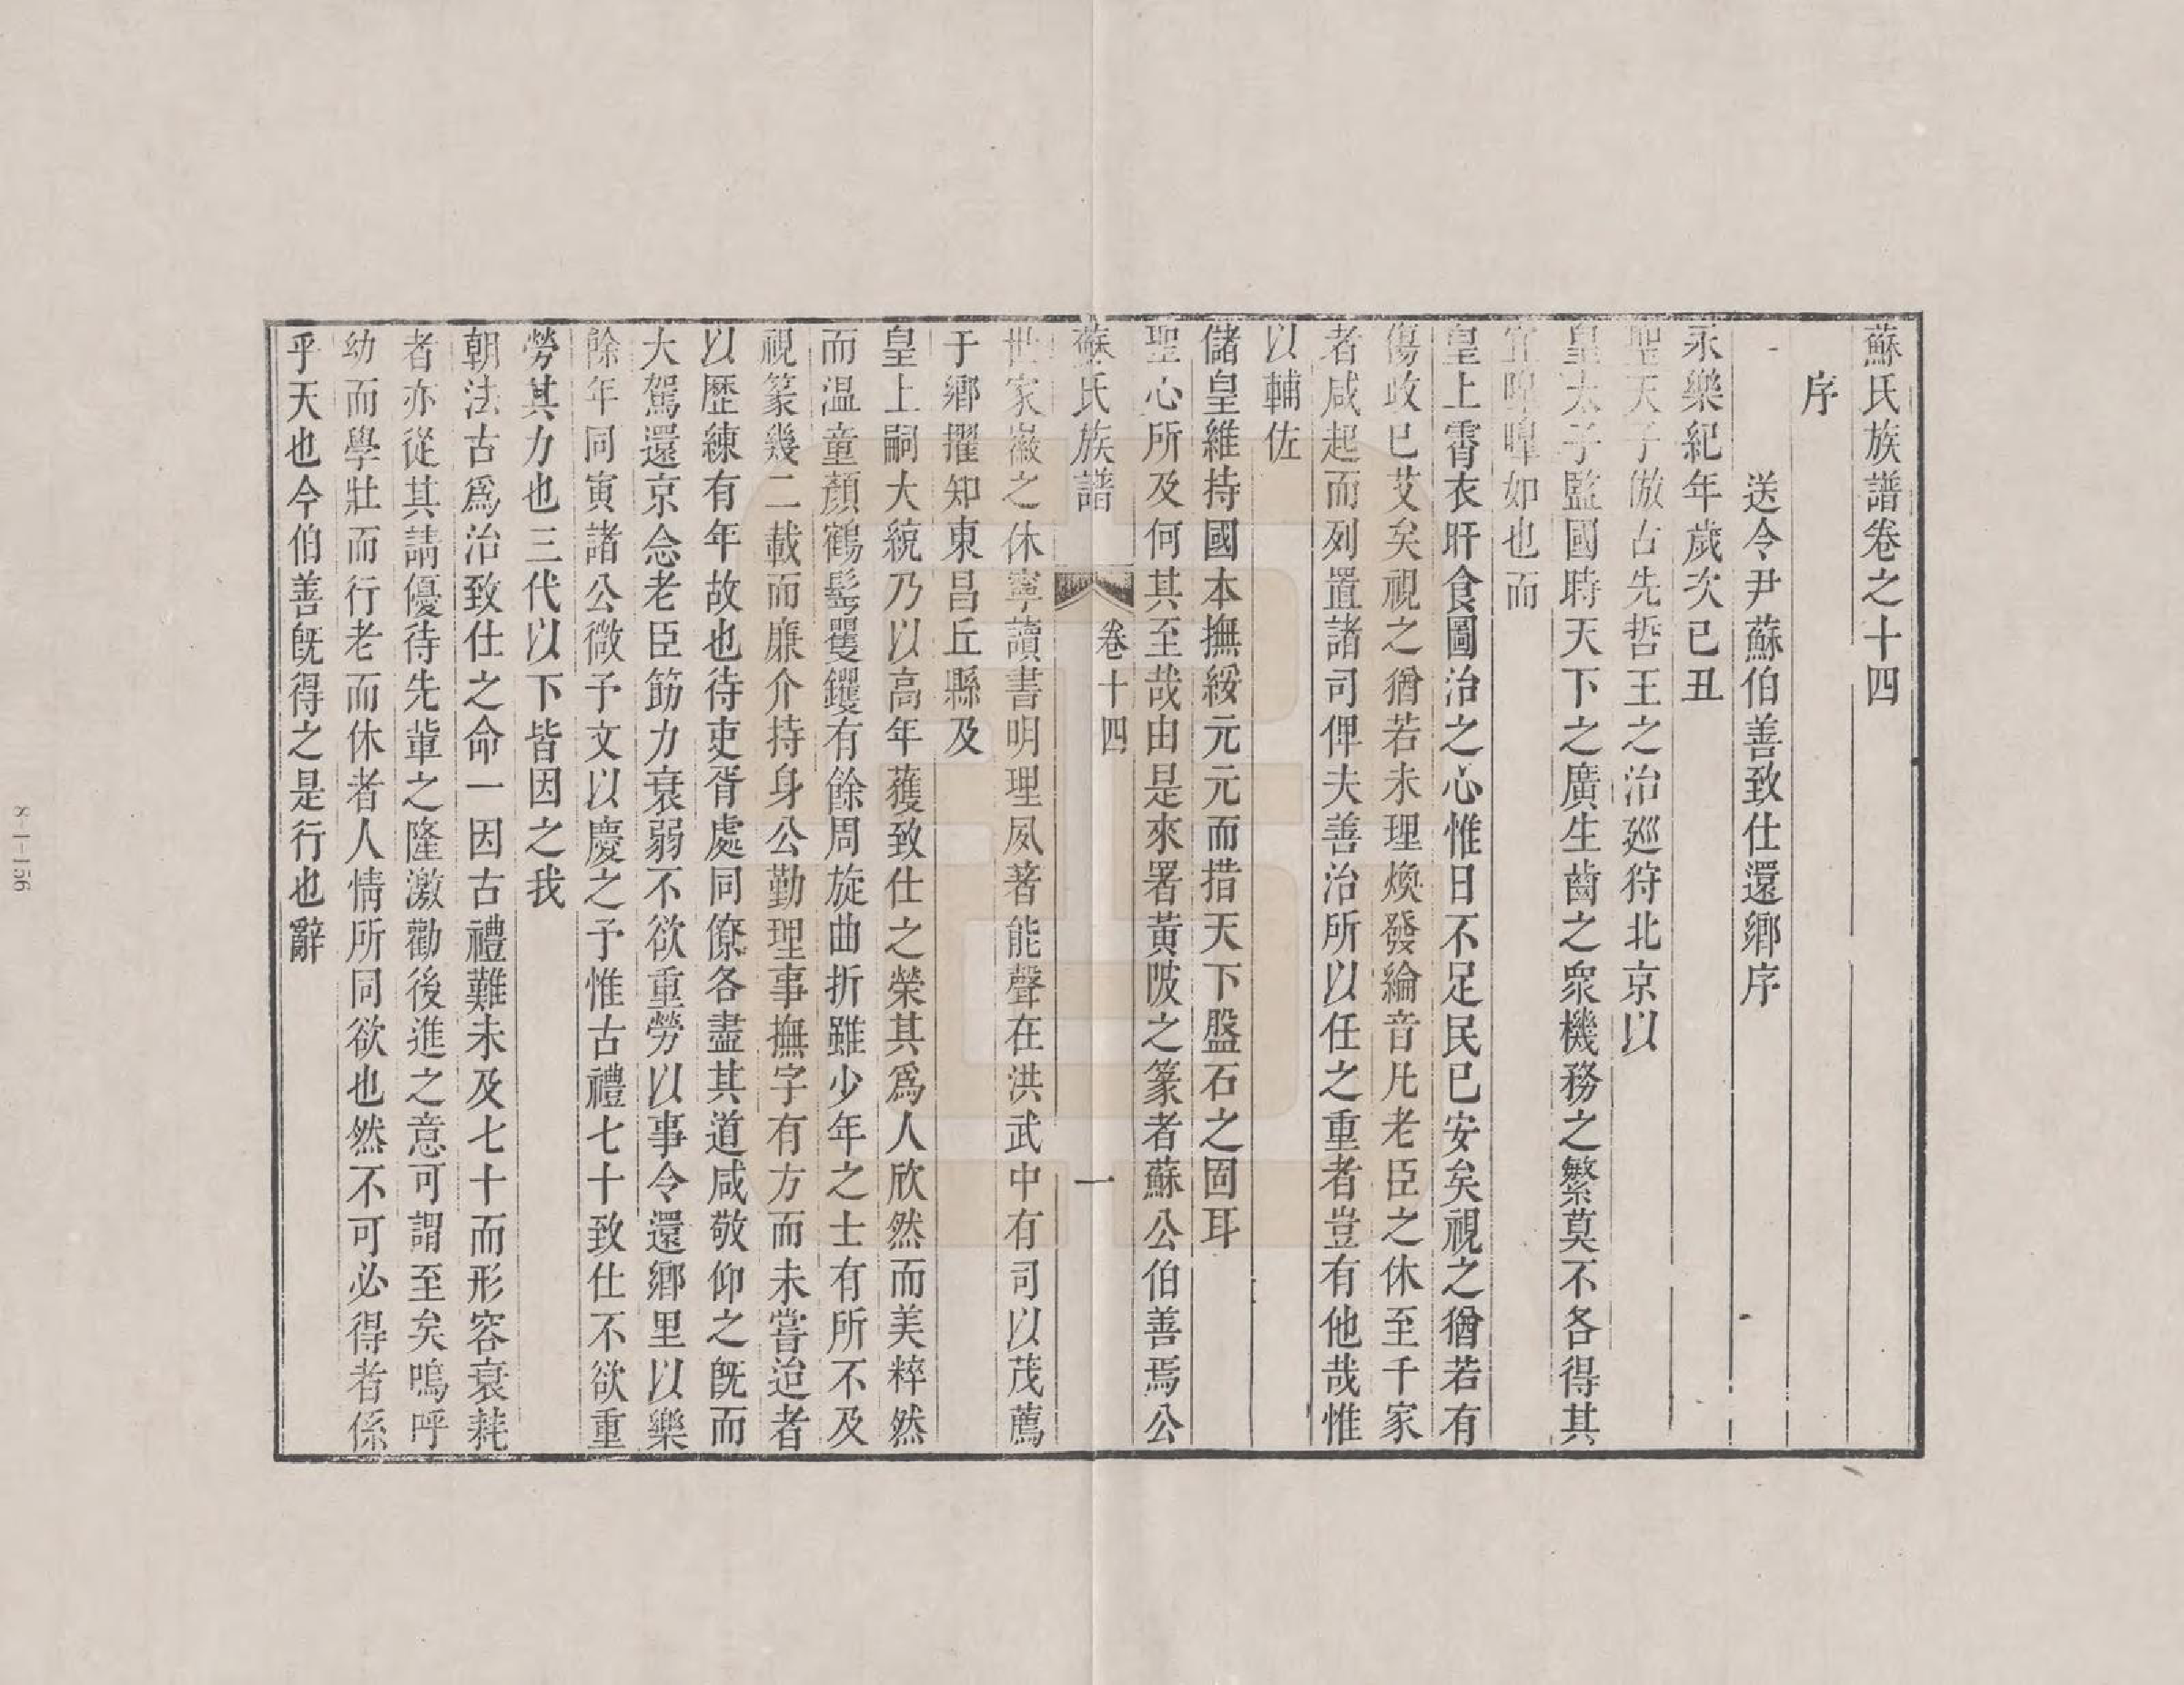 蘇氏族譜卷之十四
序
送令尹蘇伯善致仕還鄉序
永樂紀年歲次己丑
聖天子倣古先哲王之治廵狩北京以
皇太子監國時天下之廣生齒之衆機務之繁莫不各得其
宜皥皥如也而
皇上霄衣旰食圖治之心惟日不足民已安矣視之猶若有
傷政已艾矣視之猶若未理煥發綸音凡老臣之休至千家
者咸起而列置諸司俾夫善治所以任之重者豈有他哉惟
以輔佐
儲皇維持國本撫綏元元而措天下盤石之固耳
聖心所及何其至哉由是來署黃陂之篆者蘇公伯善焉公
蘇氏族譜
卷十四
一
世家徽之休寧讀書明理夙著能聲在洪武中有司以茂薦
于鄉擢知東昌丘縣及
皇上嗣大統乃以高年獲致仕之榮其爲人欣然而美粹然
而温童顏鶴髮矍鑠有餘周旋曲折雖少年之士有所不及
視篆幾二載而廉介持身公勤理事撫字有方而未嘗迨者
以歷練有年故也待吏胥處同僚各盡其道咸敬仰之旣而
大駕還京念老臣筋力衰弱不欲重勞以事令還鄉里以樂
餘年同寅諸公徵予文以慶之予惟古禮七十致仕不欲重
勞其力也三代以下皆因之我
朝法古爲治致仕之命一因古禮難未及七十而形容衰耗
者亦從其請優待先軰之隆激勸後進之意可謂至矣嗚呼
幼而學壯而行老而休者人情所同欲也然不可必得者係
乎天也今伯善旣得之是行也辭
8-1-156